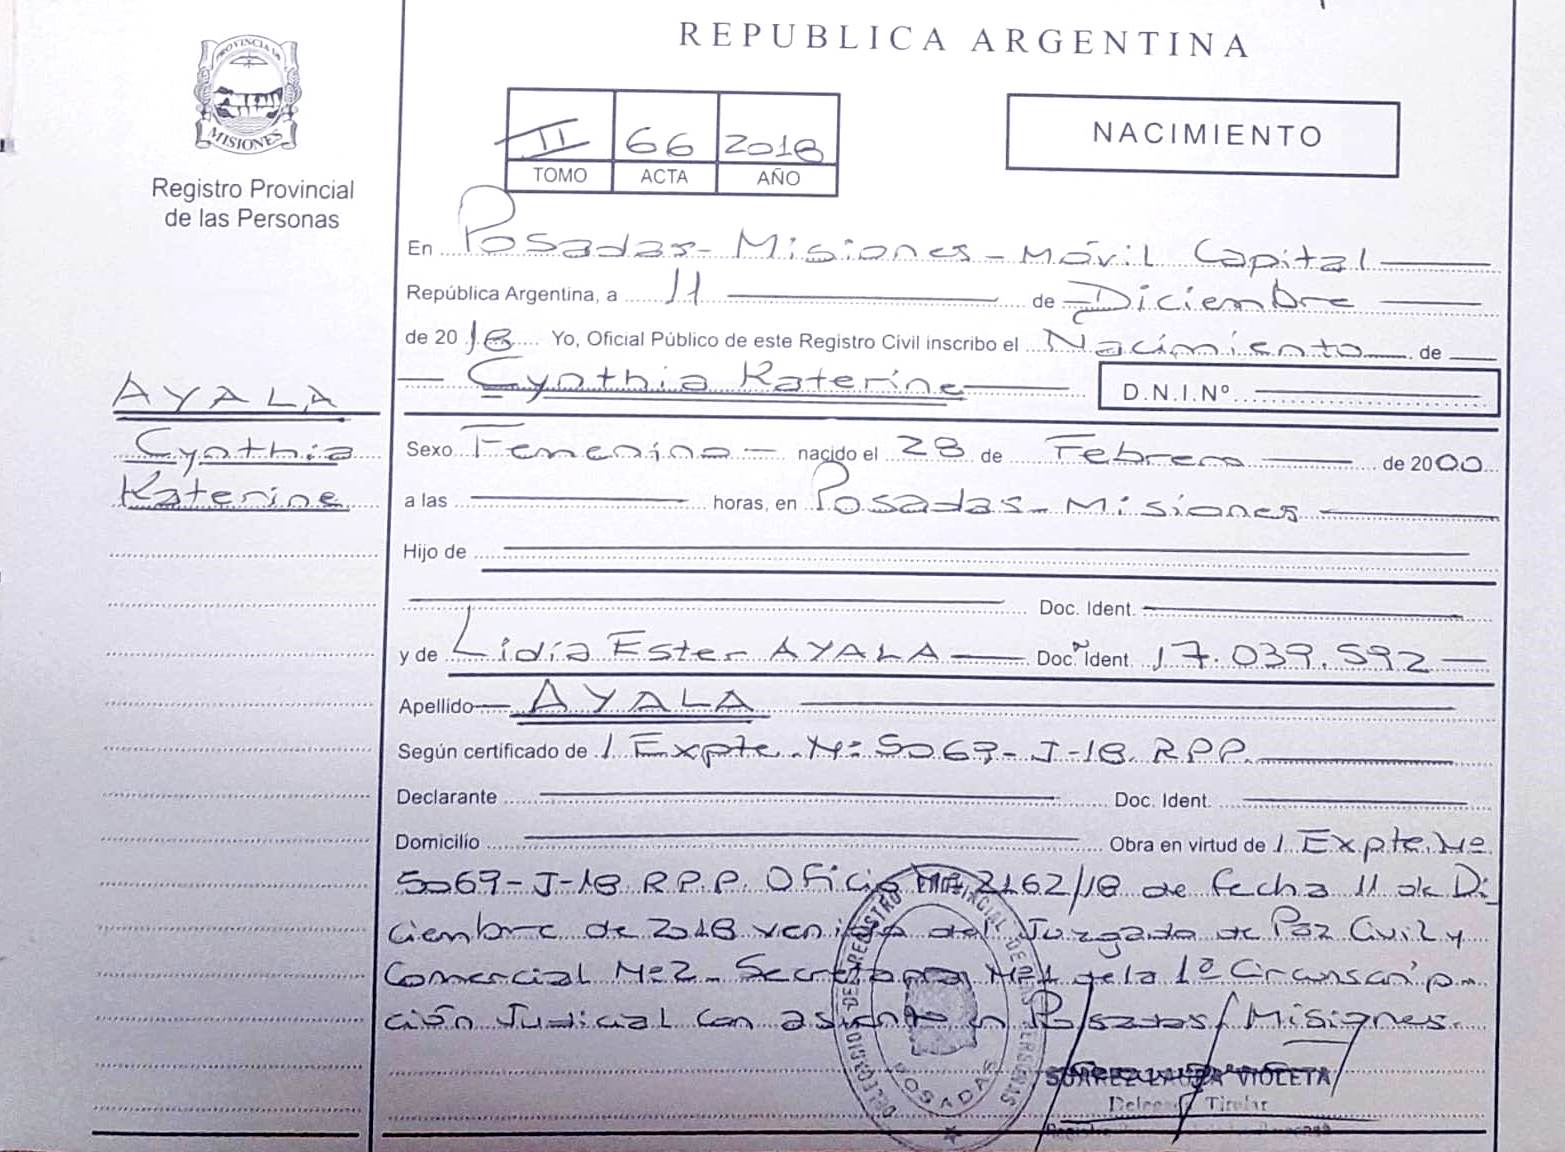 REPUBLICA ARGENTINA
PROVINCIA DE
MISIONES
Registro Provincial
de las Personas
II 66 2018
TOMO ACTA AÑO
NACIMIENTO
En Posadas - Misiones - Móvil Capital
República Argentina, a 11 de Diciembre
de 2018 Yo, Oficial Público de este Registro Civil inscribo el Nacimiento de
Cynthia Katerine D.N.I.Nº
AYALA
Cynthia
Katerine
Sexo Femenino nacido el 28 de Febrero de 2000
a las horas, en Posadas - Misiones
Hijo de
Doc. Ident.
y de Lidia Ester AYALA Doc. Ident. Nº 17.039.592
Apellido AYALA
Según certificado de 1 Expte. Nº 5069-J-18 R.P.P.
Declarante Doc. Ident.
Domicilio Obra en virtud de 1 Expte. Nº
5069-J-18 R.P.P. Oficio Nº 2162/18 de fecha 11 de Di
ciembre de 2018 venido del Juzgado de Paz Civil y
Comercial Nº2 - Secretaria Nº1 de la 1º Circunscrip
ción Judicial con asiento en Posadas Misiones.
DELEGACIO DEL REGISTRO PROVINCIAL DE LAS PERSONAS
POSADAS
SUAREZ LAURA VIOLETA
Titular